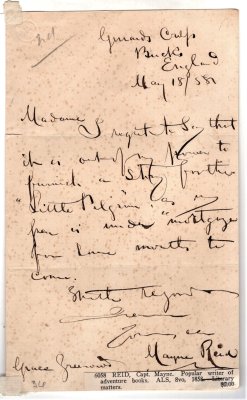 Gerrards Cross
Bucks
England
May 18/881
Madame, I regret to say that
it is out of my power to
furnish a story for the
"Little Pilgrim" as my
pen is under "mortgage"
for some months to
come.
With regard
I am
Yours
Mayne Reid
Grace Greenwood
6058 REID, Capt. Mayne. Popular writer of
adventure books. ALS, 8vo, Literary
matters. $2.00